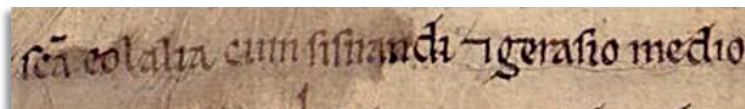 scã eolalia cum sisnandi ⁊ gerasio medio